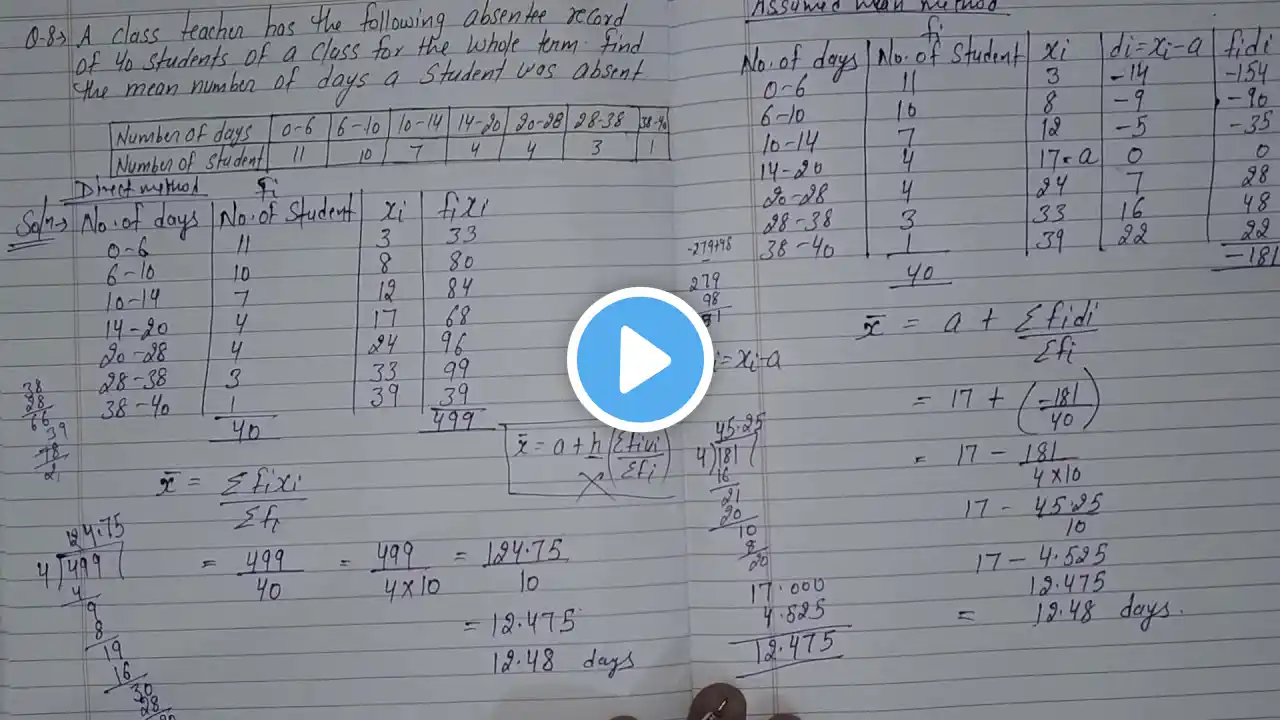 Q.8→ A class teacher has the following absentee record
of 40 students of a class for the whole term. find
the mean number of days a student was absent
Number of days 0-6 6-10 10-14 14-20 20-28 28-38 38-40
Number of student 11 10 7 4 4 3 1
Direct method fi
Soln→ No. of days No. of Student xi fixi
0-6 11 3 33
6-10 10 8 80
10-14 7 12 84
14-20 4 17 68
20-28 4 24 96
28-38 3 33 99
38-40 1 39 39
40 499
38
28
66
39
x̄ = a + h (Σfiui / Σfi)
x̄ = Σfixi / Σfi
= 499/40 = 499/4×10 = 124.75/10
= 12.475
12.48 days
124.75
4)499(
4
9
8
19
16
30
28
Assumed mean method
fi
No. of days No. of Student xi di=xi-a fidi
0-6 11 3 -14 -154
6-10 10 8 -9 -90
10-14 7 12 -5 -35
14-20 4 17=a 0 0
20-28 4 24 7 28
28-38 3 33 16 48
38-40 1 39 22 22
40 -181
-279+98
279
98
=xi-a
x̄ = a + Σfidi / Σfi
= 17 + (-181/40)
= 17 - 181/4×10
17 - 45.25/10
17 - 4.525
12.475
= 12.48 days.
45.25
4)181(
16
21
20
10
8
20
17.000
4.525
12.475